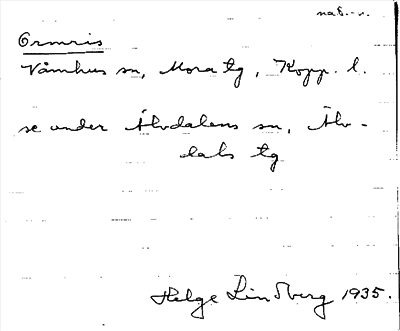 nab.-v.
Ormris
Våmhus sn, Mora tg, Kopp. l.
se under Älvdalens sn, Älv-
dals tg
Helge Lindberg 1935.